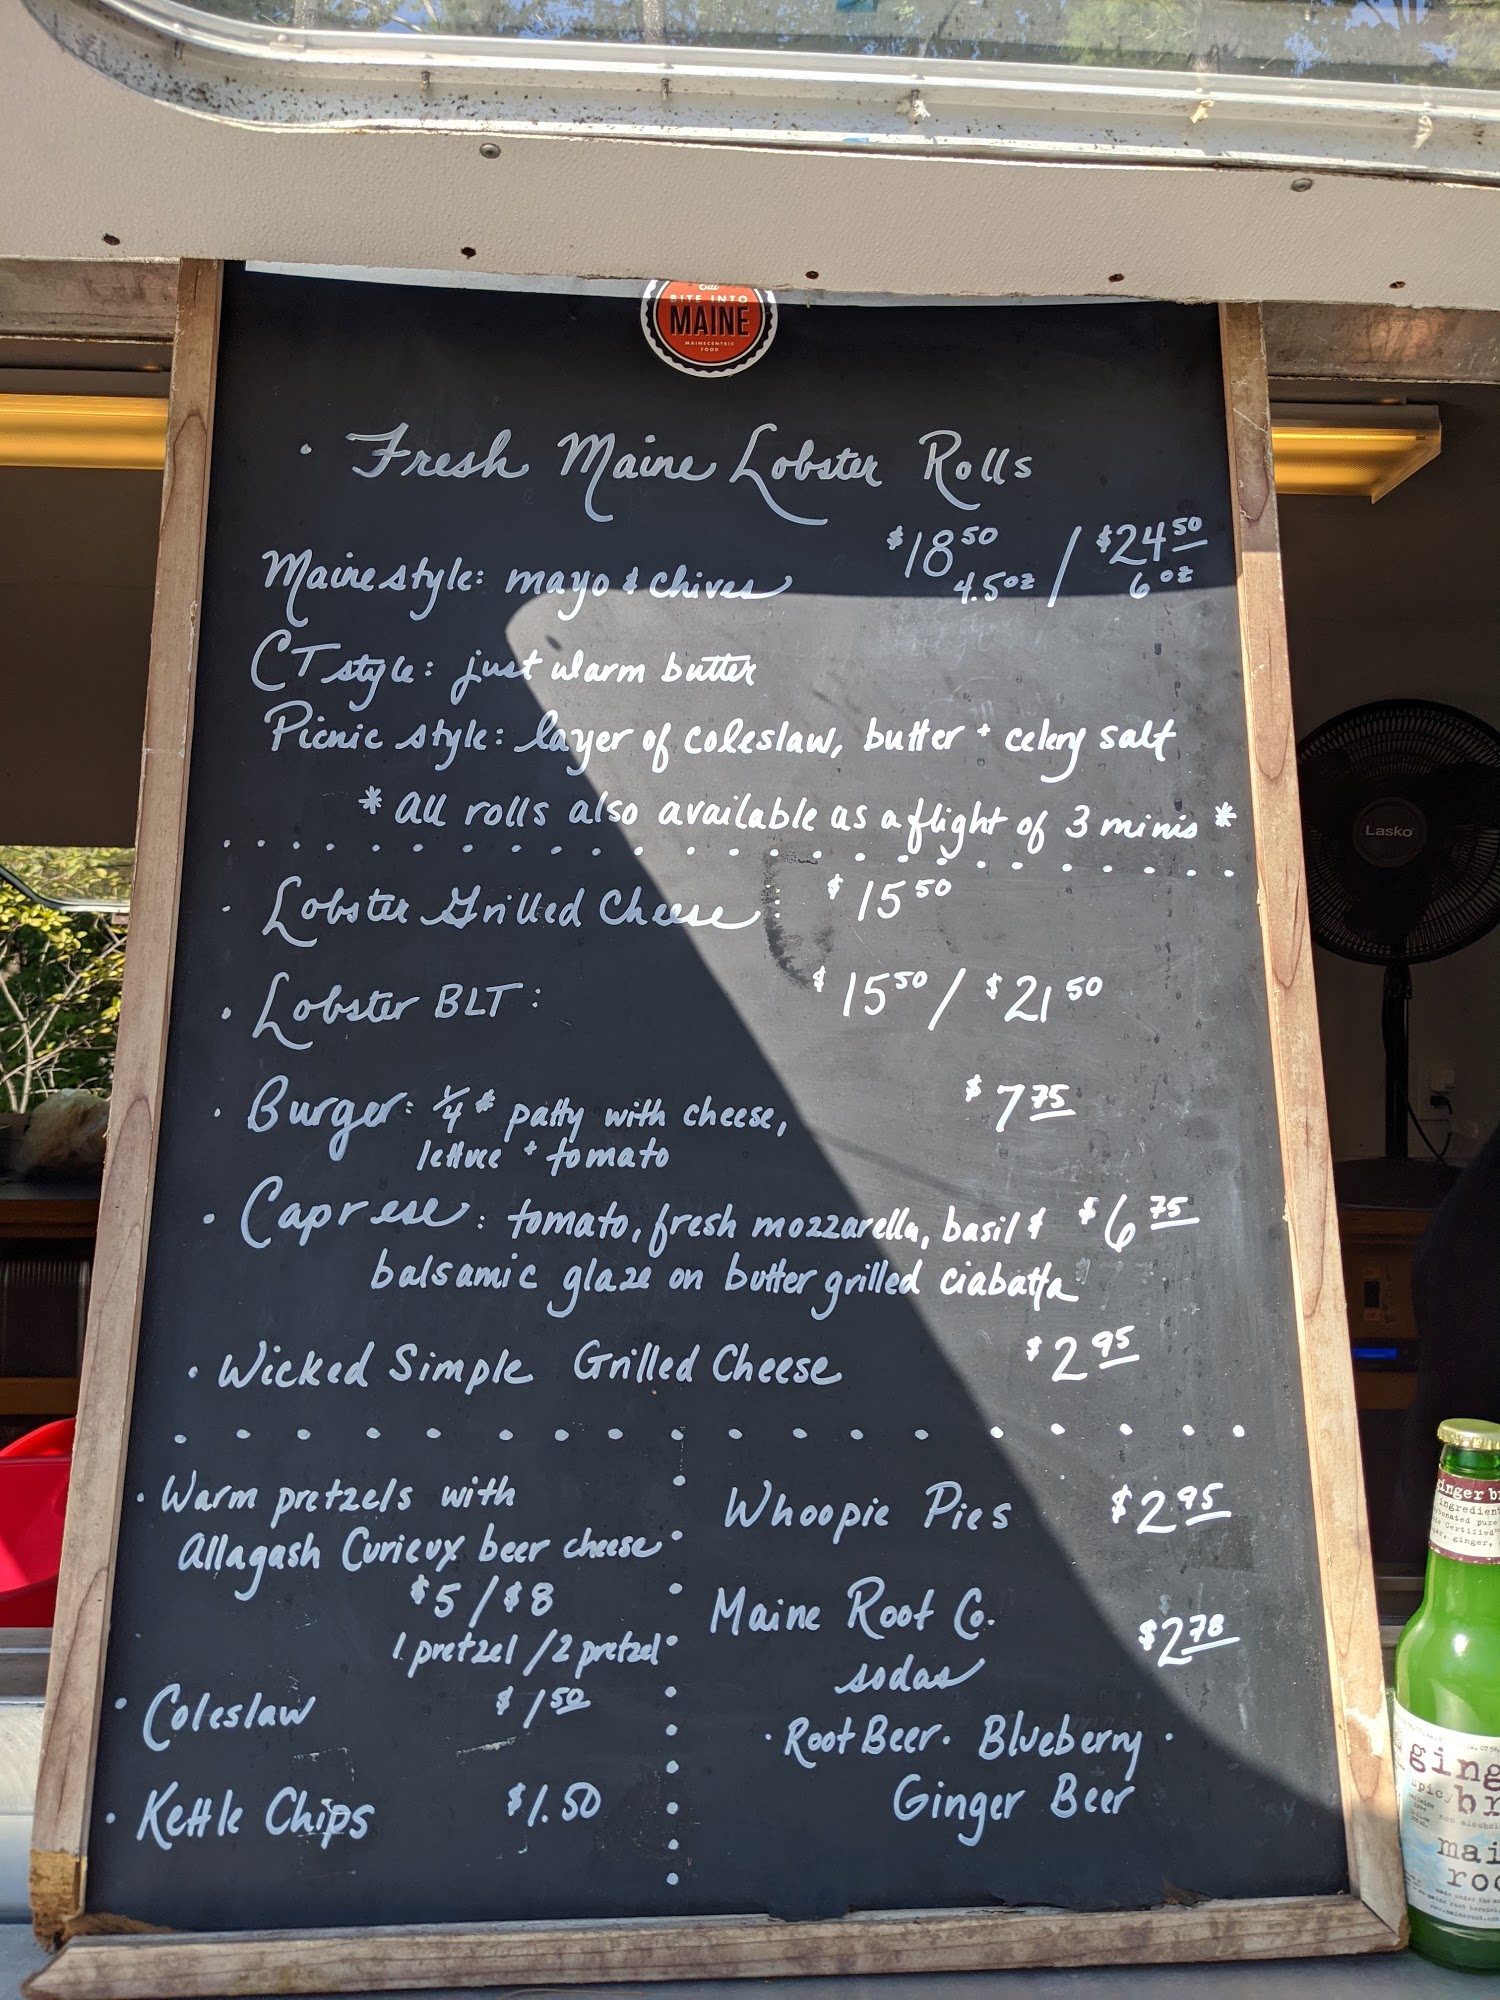 BITE INTO
MAINE
MAINECENTRIC
FOOD
• Fresh Maine Lobster Rolls
Maine style: mayo & chives $18.50 4.5oz / $24.50 6oz
CT style: just warm butter
Picnic style: layer of coleslaw, butter + celery salt
* all rolls also available as a flight of 3 minis *
• Lobster Grilled Cheese: $15.50
• Lobster BLT: $15.50 / $21.50
• Burger: 1/4 # patty with cheese, $7.75
lettuce + tomato
• Caprese: tomato, fresh mozzarella, basil & $6.75
balsamic glaze on butter grilled ciabatta
• Wicked Simple Grilled Cheese $2.95
• Warm pretzels with
Allagash Curieux beer cheese
$5 / $8
1 pretzel / 2 pretzel
• Coleslaw $1.50
• Kettle Chips $1.50
Whoopie Pies $2.95
Maine Root Co. $2.78
sodas
• Root Beer • Blueberry •
Ginger Beer
Lasko
ginger
ingredien
ginger,
spicy